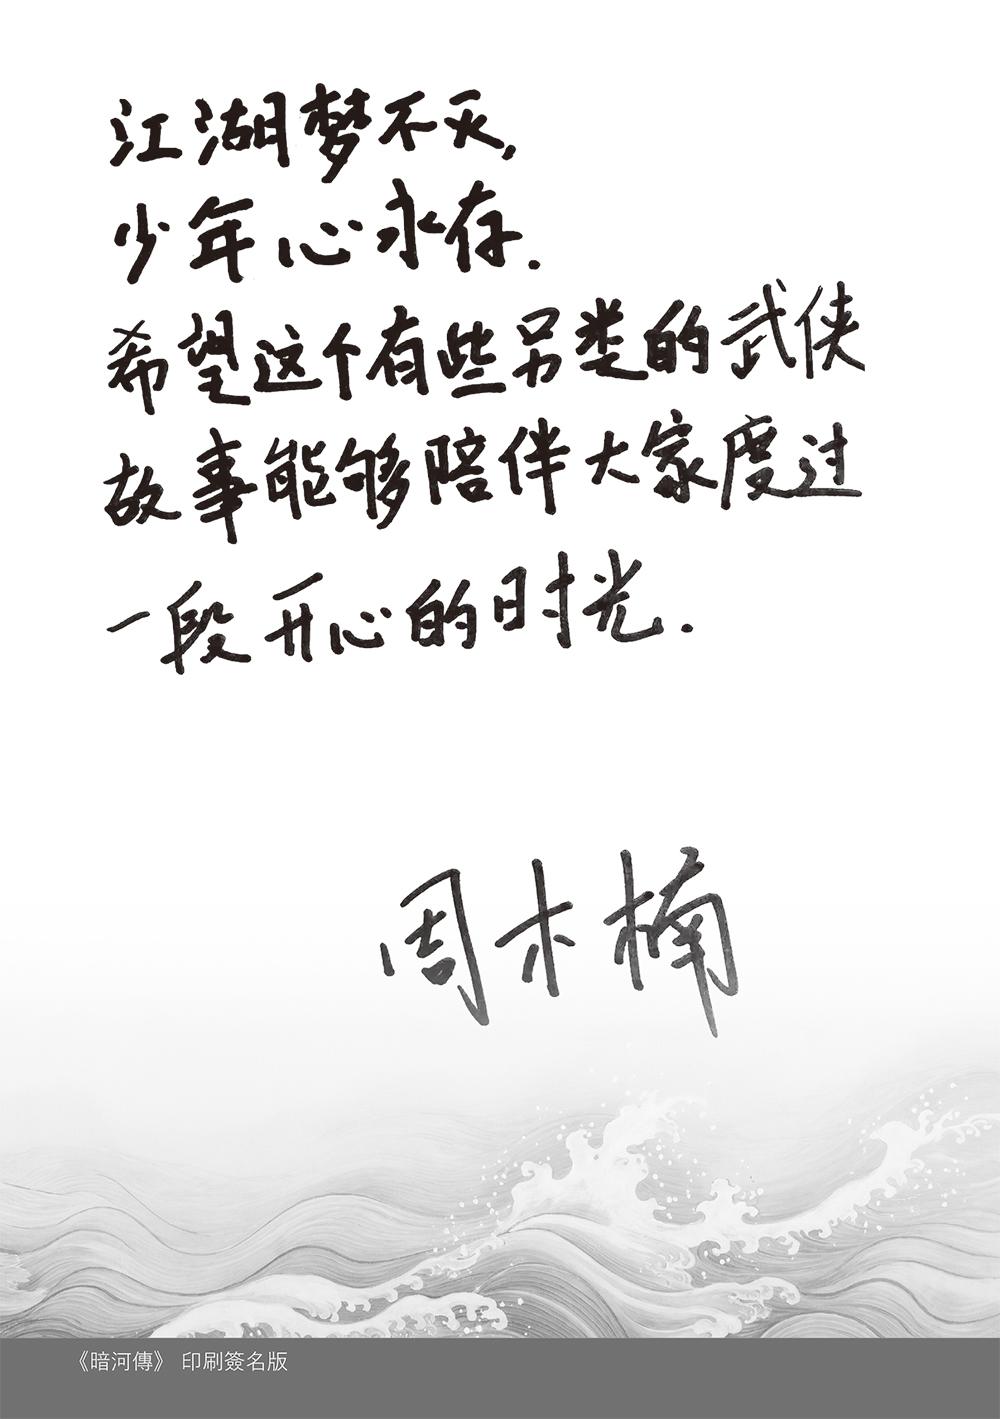 江湖梦不灭,
少年心永存.
希望这个有些另类的武侠
故事能够陪伴大家度过
一段开心的时光.
周木楠
《暗河傳》 印刷簽名版